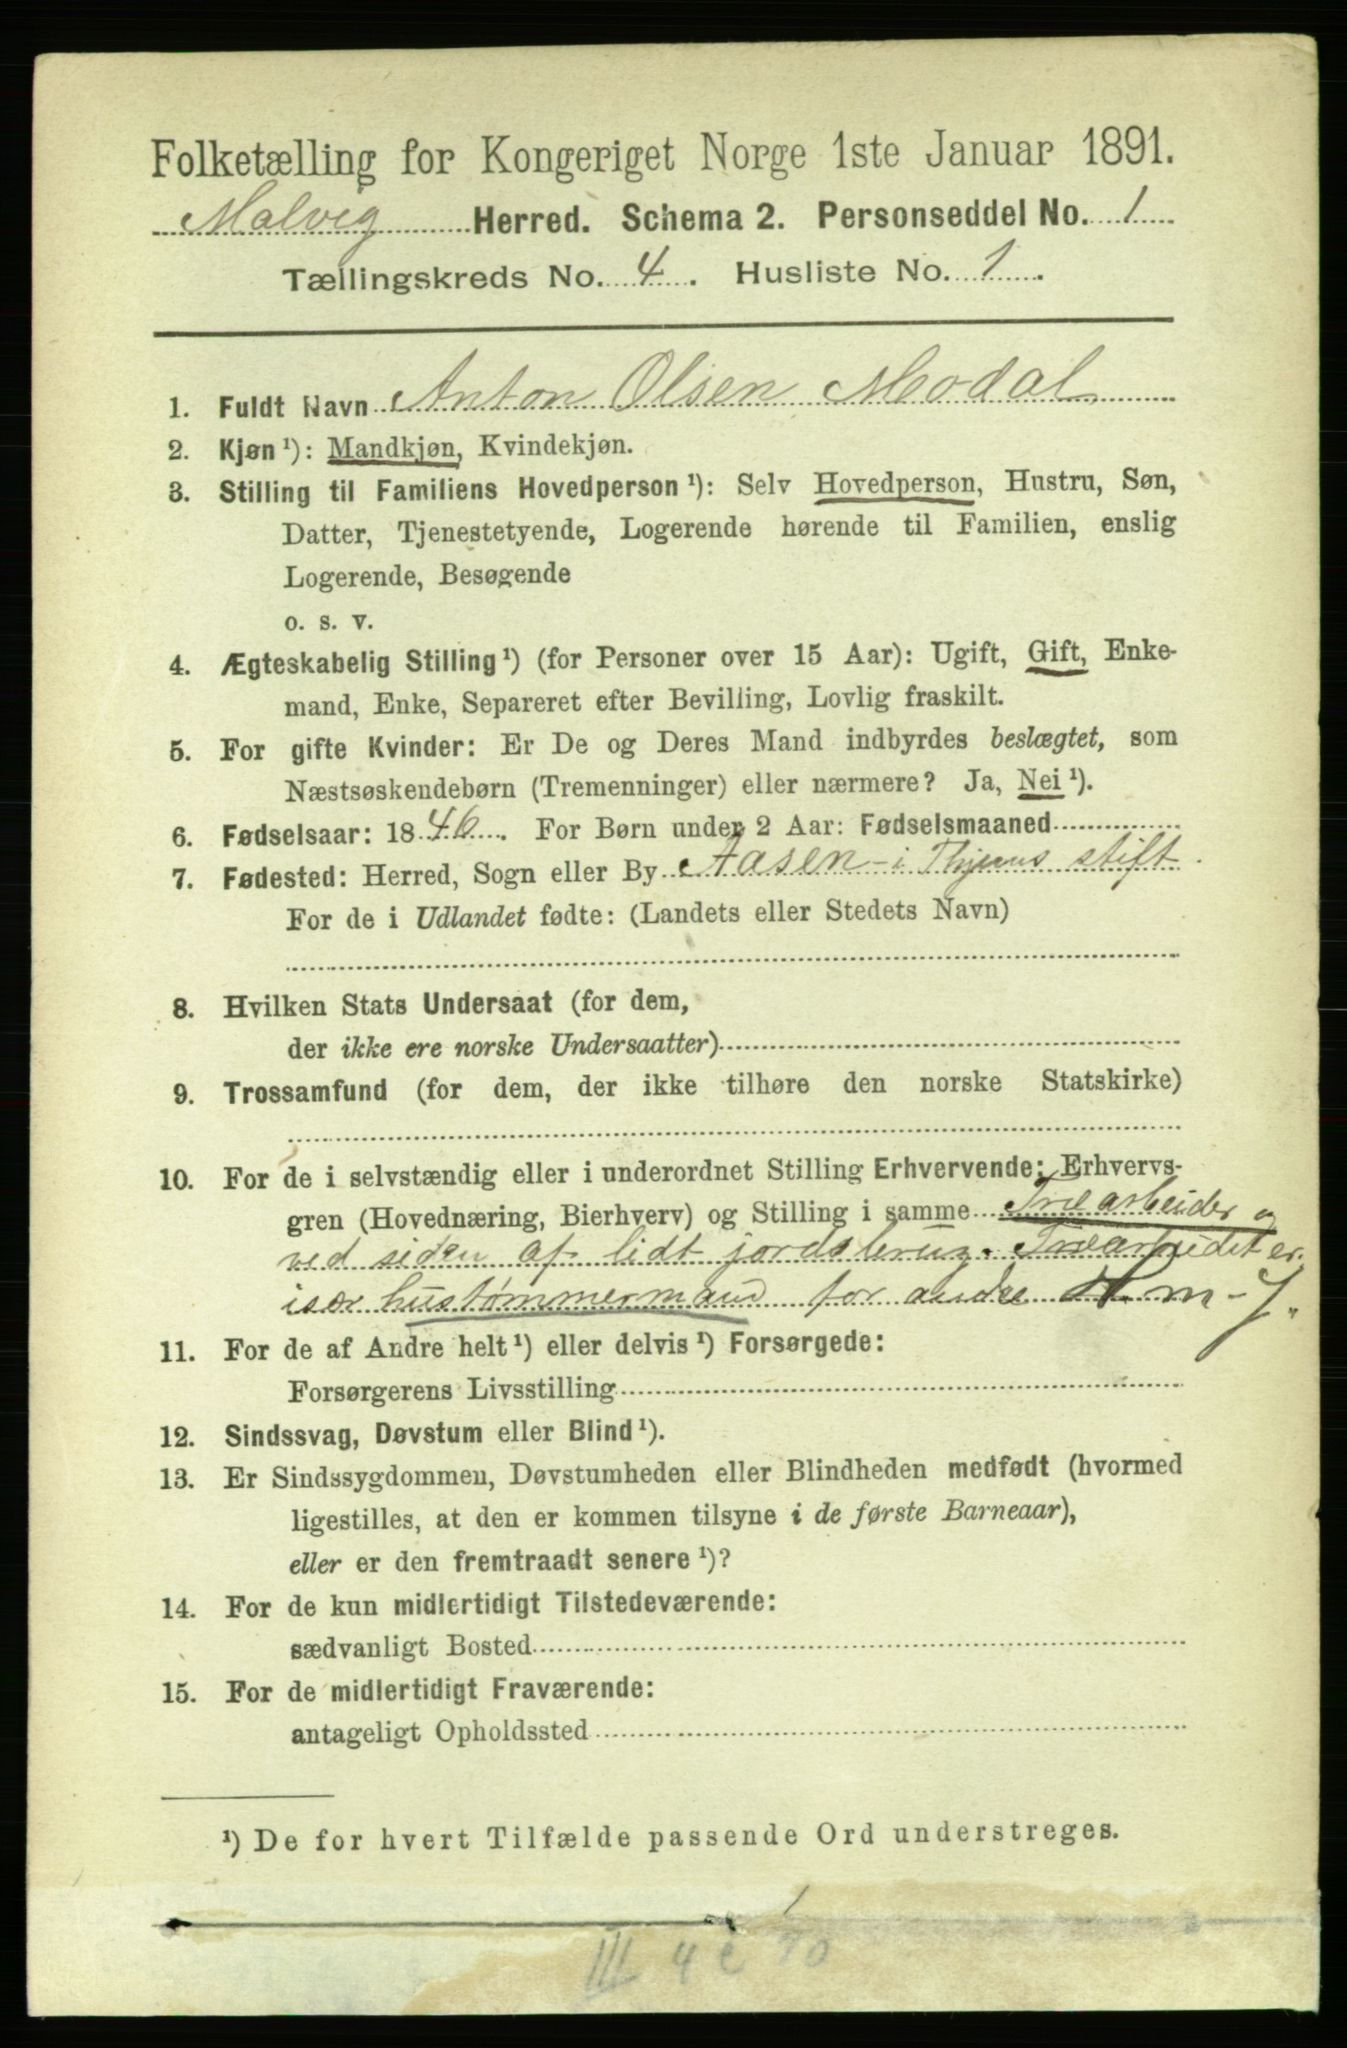 Folketælling for Kongeriget Norge 1ste Januar 1891.
Malvig Herred. Schema 2. Personseddel No. 1
Tællingskreds No. 4. Husliste No. 1.
1. Fuldt Navn Anton Olsen Modal
2. Kjøn ¹): Mandkjøn, Kvindekjøn.
3. Stilling til Familiens Hovedperson ¹): Selv Hovedperson, Hustru, Søn,
Datter, Tjenestetyende, Logerende hørende til Familien, enslig
Logerende, Besøgende
o. s. v.
4. Ægteskabelig Stilling ¹) (for Personer over 15 Aar): Ugift, Gift, Enke-
mand, Enke, Separeret efter Bevilling, Lovlig fraskilt.
5. For gifte Kvinder: Er De og Deres Mand indbyrdes beslægtet, som
Næstsøskendebørn (Tremenninger) eller nærmere? Ja, Nei ¹).
6. Fødselsaar: 1846. For Børn under 2 Aar: Fødselsmaaned
7. Fødested: Herred, Sogn eller By Aasen i Thjems stift.
For de i Udlandet fødte: (Landets eller Stedets Navn)
8. Hvilken Stats Undersaat (for dem,
der ikke ere norske Undersaatter)
9. Trossamfund (for dem, der ikke tilhøre den norske Statskirke)
10. For de i selvstændig eller i underordnet Stilling Erhvervende: Erhvervs-
gren (Hovednæring, Bierhverv) og Stilling i samme Træarbeider og
ved siden af lidt jordsbrug. Træarbeidet er
især hustømmermand for andre m-J.
11. For de af Andre helt ¹) eller delvis ¹) Forsørgede:
Forsørgerens Livsstilling
12. Sindssvag, Døvstum eller Blind ¹).
13. Er Sindssygdommen, Døvstumheden eller Blindheden medfødt (hvormed
ligestilles, at den er kommen tilsyne i de første Barneaar),
eller er den fremtraadt senere ¹)?
14. For de kun midlertidigt Tilstedeværende:
sædvanligt Bosted
15. For de midlertidigt Fraværende:
antageligt Opholdssted
¹) De for hvert Tilfælde passende Ord understreges.
III 4 c 10